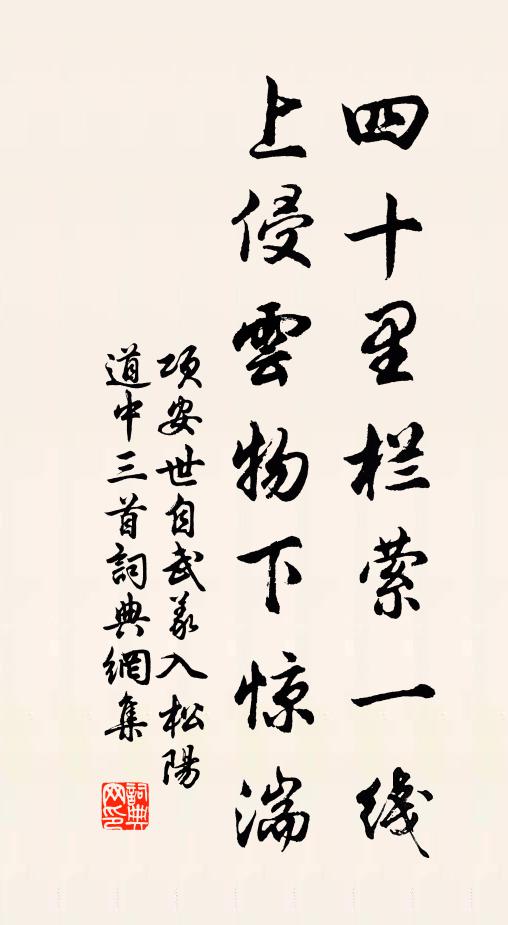 四十里栏萦一线
上侵雲物下惊湍
项安世自武义入松陽
道中三首詞典網集
詞典
网印